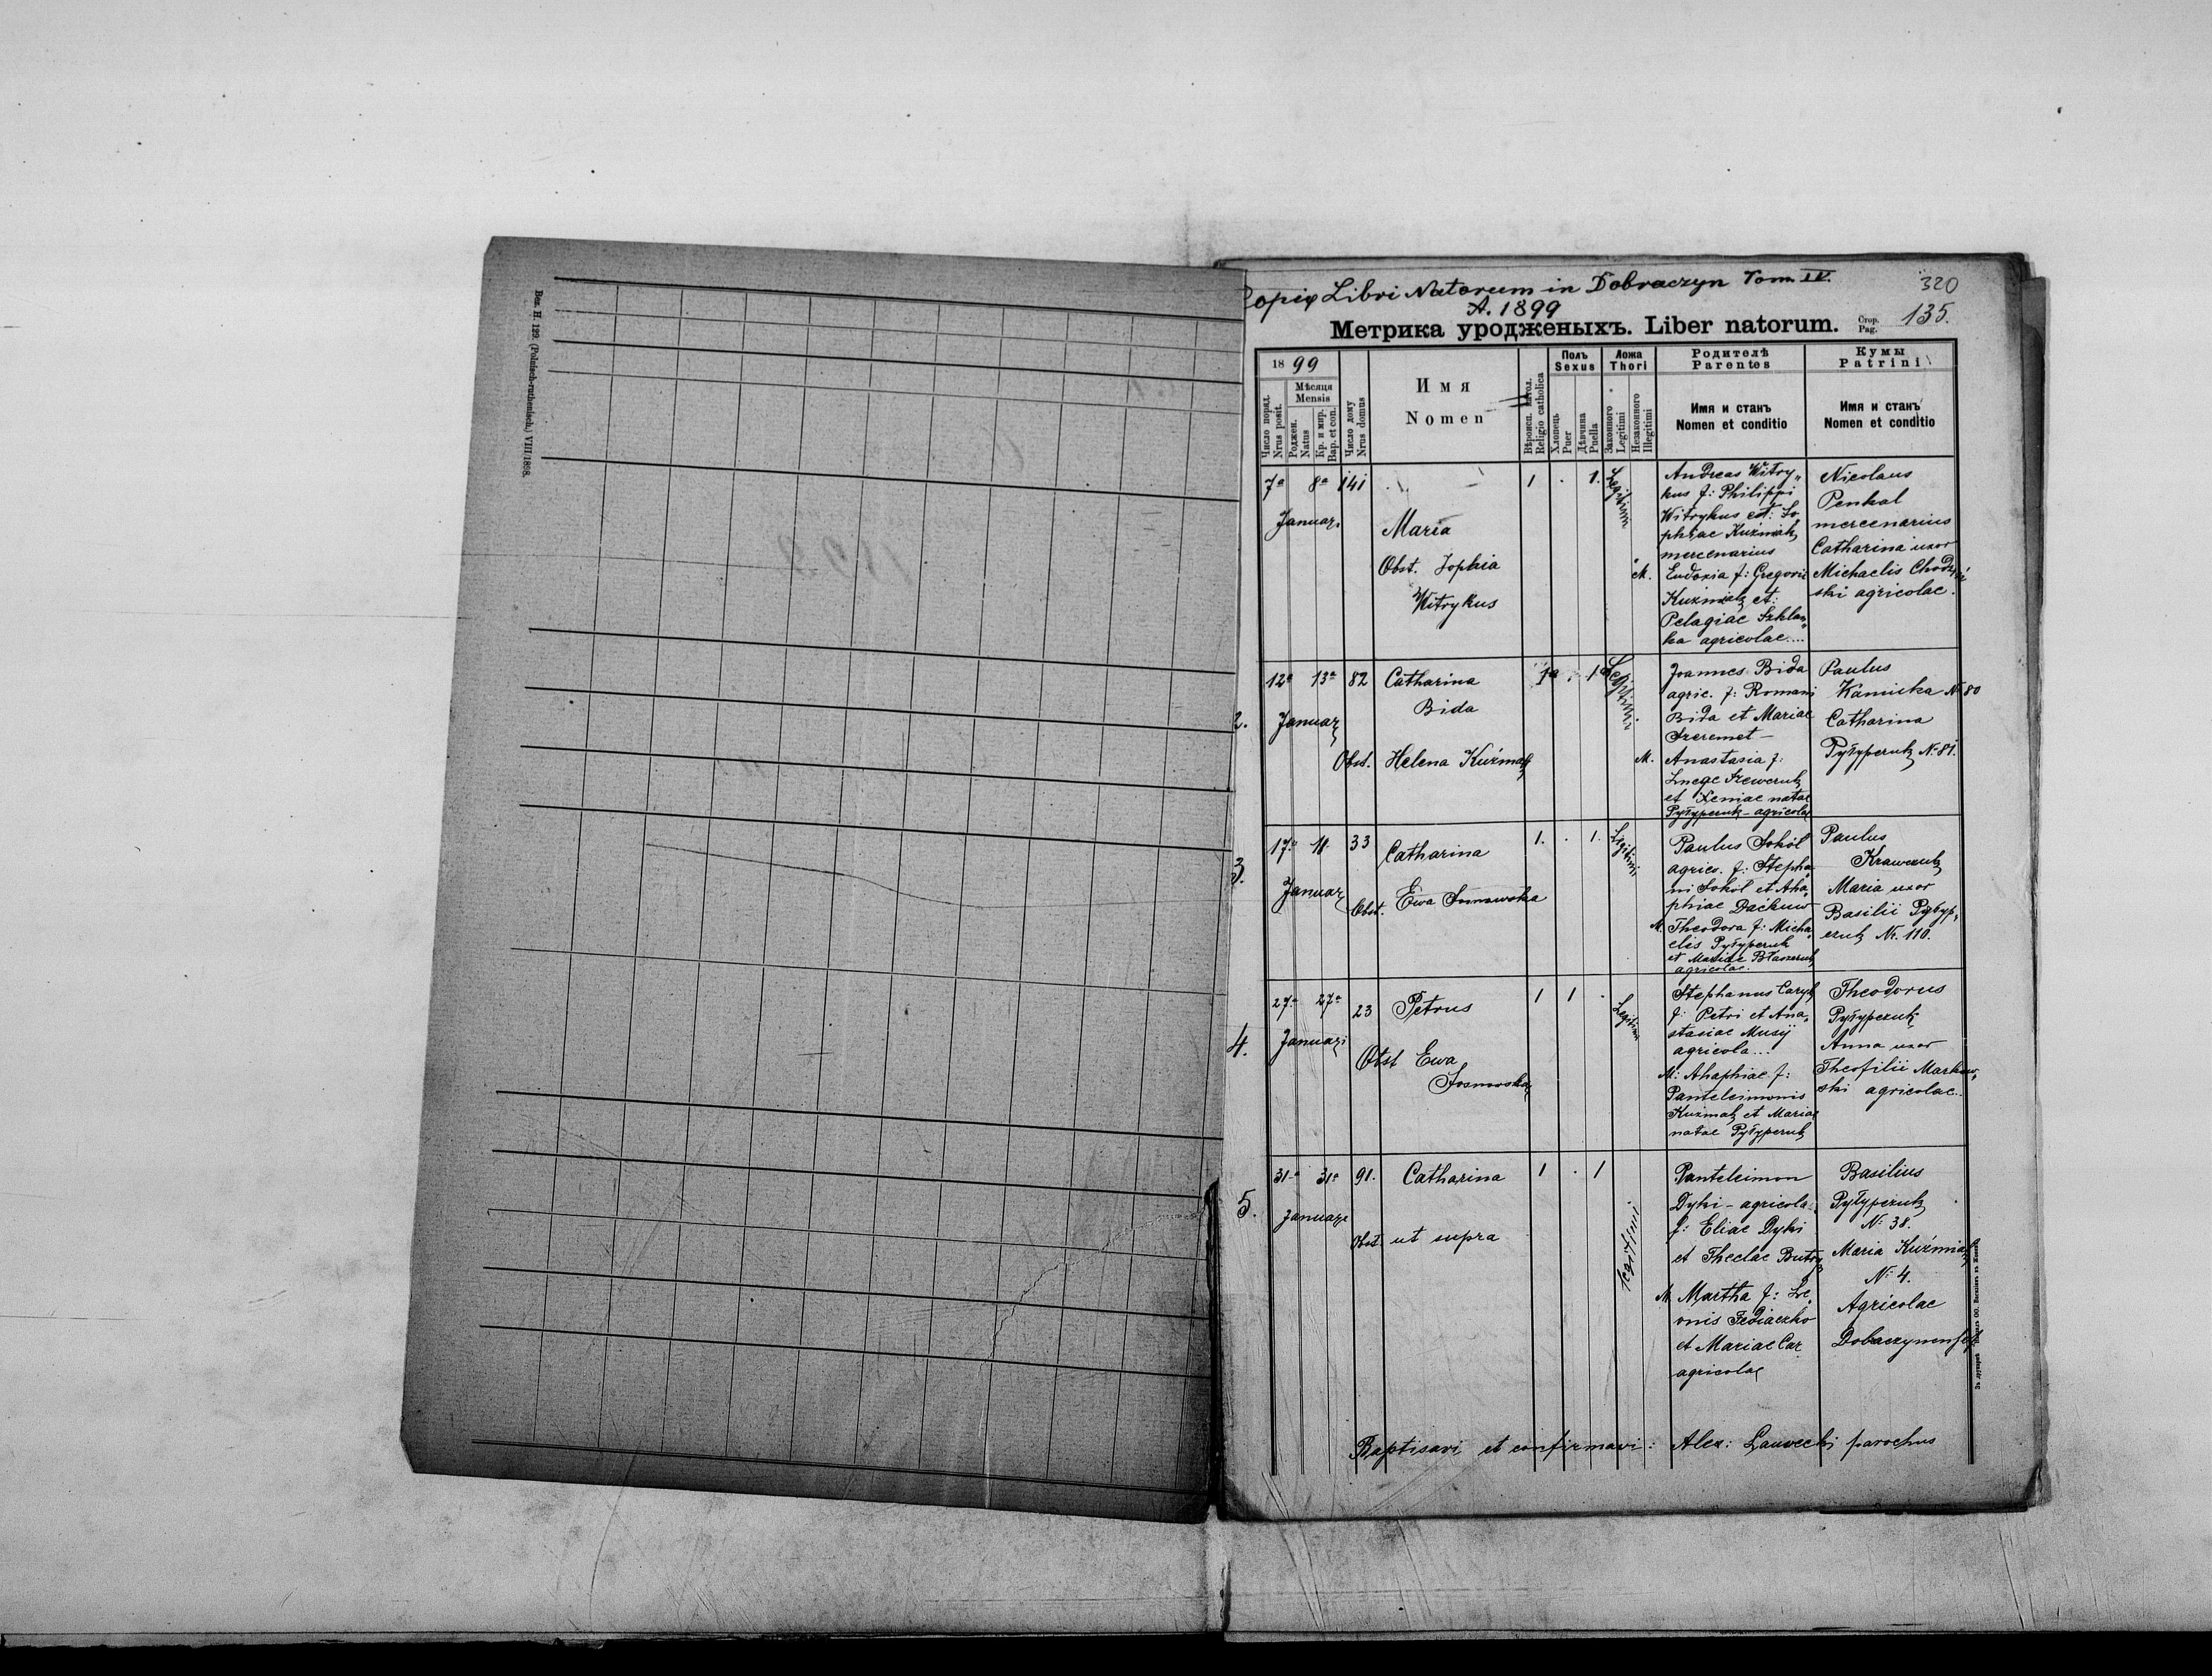 Copia Libri Natorum in Dobraczyn Tom IV.
A. 1899
320
Метрика уродженыхъ. Liber natorum.
Стор.
Pag.
135.
18 99
Число поряд.
Nrus posit.
Мѣсяця
Mensis
Роджен.
Natus
Кр. и мир.
Bap. et con.
Число дому
Nrus domus
Имя
Nomen
Вѣроисп. катол.
Religio catholica
Полъ
Sexus
Хлопець
Puer
Дѣвчина
Puella
Ложа
Thori
Законного
Legitimi
Незаконного
Illegitimi
Родителѣ
Parentes
Имя и станъ
Nomen et conditio
Кумы
Patrini
Имя и станъ
Nomen et conditio
7a 8a 141
Januar.
Maria
Obst. Sophia
Witrykus
1 . 1.
Legitimi
Andreas Witry„
kus f: Philippi
Witrykus et: So
phiae Kuźmiak
mercenarius
M. Eudoxia f: Gregorii
Kuzmiak et:
Pelagiae Szklar„
ka agricolae....
Nicolaus
Penkal
mercenarius
Catharina uxor
Michaelis
ski agricolae.
2.
12a 13a 82
Januar
Catharina
Bida
Obst. Helena Kuźmak
1a . 1a
Legitimi
Joannes Bida
agric. f: Romani
Bida et Mariae
Szeremet —
M. Anastasia f:
Szewczuk
et Xeniae natae
Pyłypczuk - agricolae
Paulus
Kamińka N. 80
Catharina
Pyłypczuk N. 81.
3.
17. 18 33
Januar
Catharina
Obst. Ewa Sosnowska
1. . 1.
Legitimi
Paulus Sokół
agrico. f: Stepha
ni Sokół et Aha„
phiae
M. Theodora f: Micha„
elis Pyłypczuk
et Mariae Błaszczuk
agricolae.
Paulus
Krawczuk
Maria uxor
Basilii Pyłyp„
czuk Nr. 110.
4.
27a 27a 23
Januar
Petrus
Obst Ewa
Sosnowska
1 1 .
Legitimi
Stephanus Caryk
f: Petri et Ana„
stasiae Musij
agricola...
M: Ahaphiae f:
Panteleimonis
Kuzmak et Mariae
natae Pyłypczuk
Theodorus
Pyłypczuk
Anna uxor
Theofilii Markow„
ski agricolae..
5.
31a 31a 91.
Januar
Catharina
Obst. ut supra
1 . 1
Legitimi
Panteleimon
Dyki - agricola
f: Eliae Dyki
et Theclae Butry
M Martha f: Le„
onis Fediaczko
et Mariae Car
agricolae
Basilius
Pyłypczuk
N: 38.
Maria Kuźmiak
N: 4.
Agricolae
Baptisavi et confirmavi: Alex: parochus
Вец. Н. 129. (Polnisch-ruthenisch.) VIII/1898.